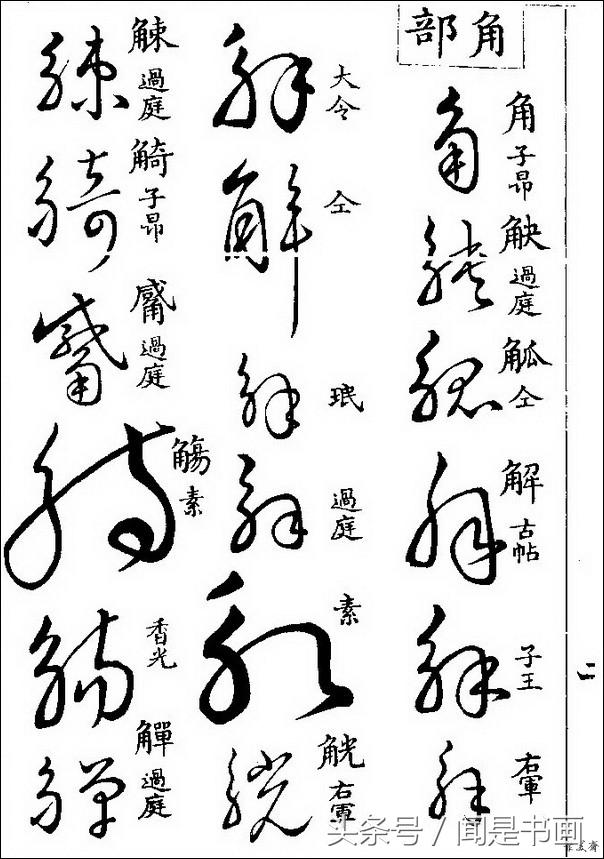 角部
角 子昂
觖 過庭
觚 仝
解 古帖
子王
右軍
大令
仝
珉
過庭
素
觥 右軍
觫 過庭
觭 子昂
觱 過庭
觴 素
香光
觶 過庭
二
头条号 / 闻是书画